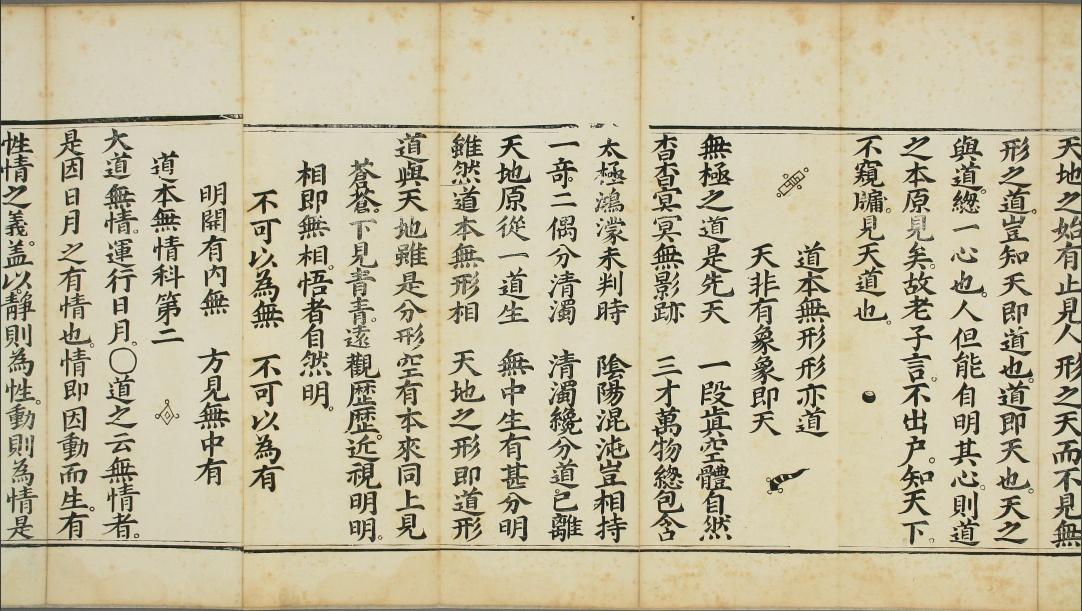 天地之始有止見人形之天而不見無
形之道。豈知天即道也。道即天也。天之
與道。緫一心也。人但能自明其心。則道
之本原見矣。故老子言。不出户。知天下。
不窺牖。見天道也。
道本無形形亦道
天非有象象即天
無極之道是先天　一段眞空體自然
杳杳冥冥無影跡　三才萬物緫包含
太極鴻濛未判時　陰陽混沌豈相持
一竒。二偶分清濁　清濁纔分道已離
天地原從一道生　無中生有甚分明
雖然道本無形相　天地之形即道形
道與天地雖是分形。空有本來同上見
蒼蒼。下見青青。遠觀歷歷。近視明明。
相即無相。悟者自然明。
不可以為無　不可以為有
明開有內無　方見無中有
道本無情科第二
大道無情。運行日月。〇道之云無情者。
是因日月之有情也。情即因動而生。有
性情之義。盖以靜則為性。動則為情是